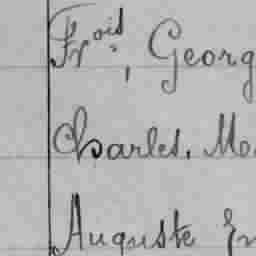 Frois, Georg
Charles, Me
Auguste En